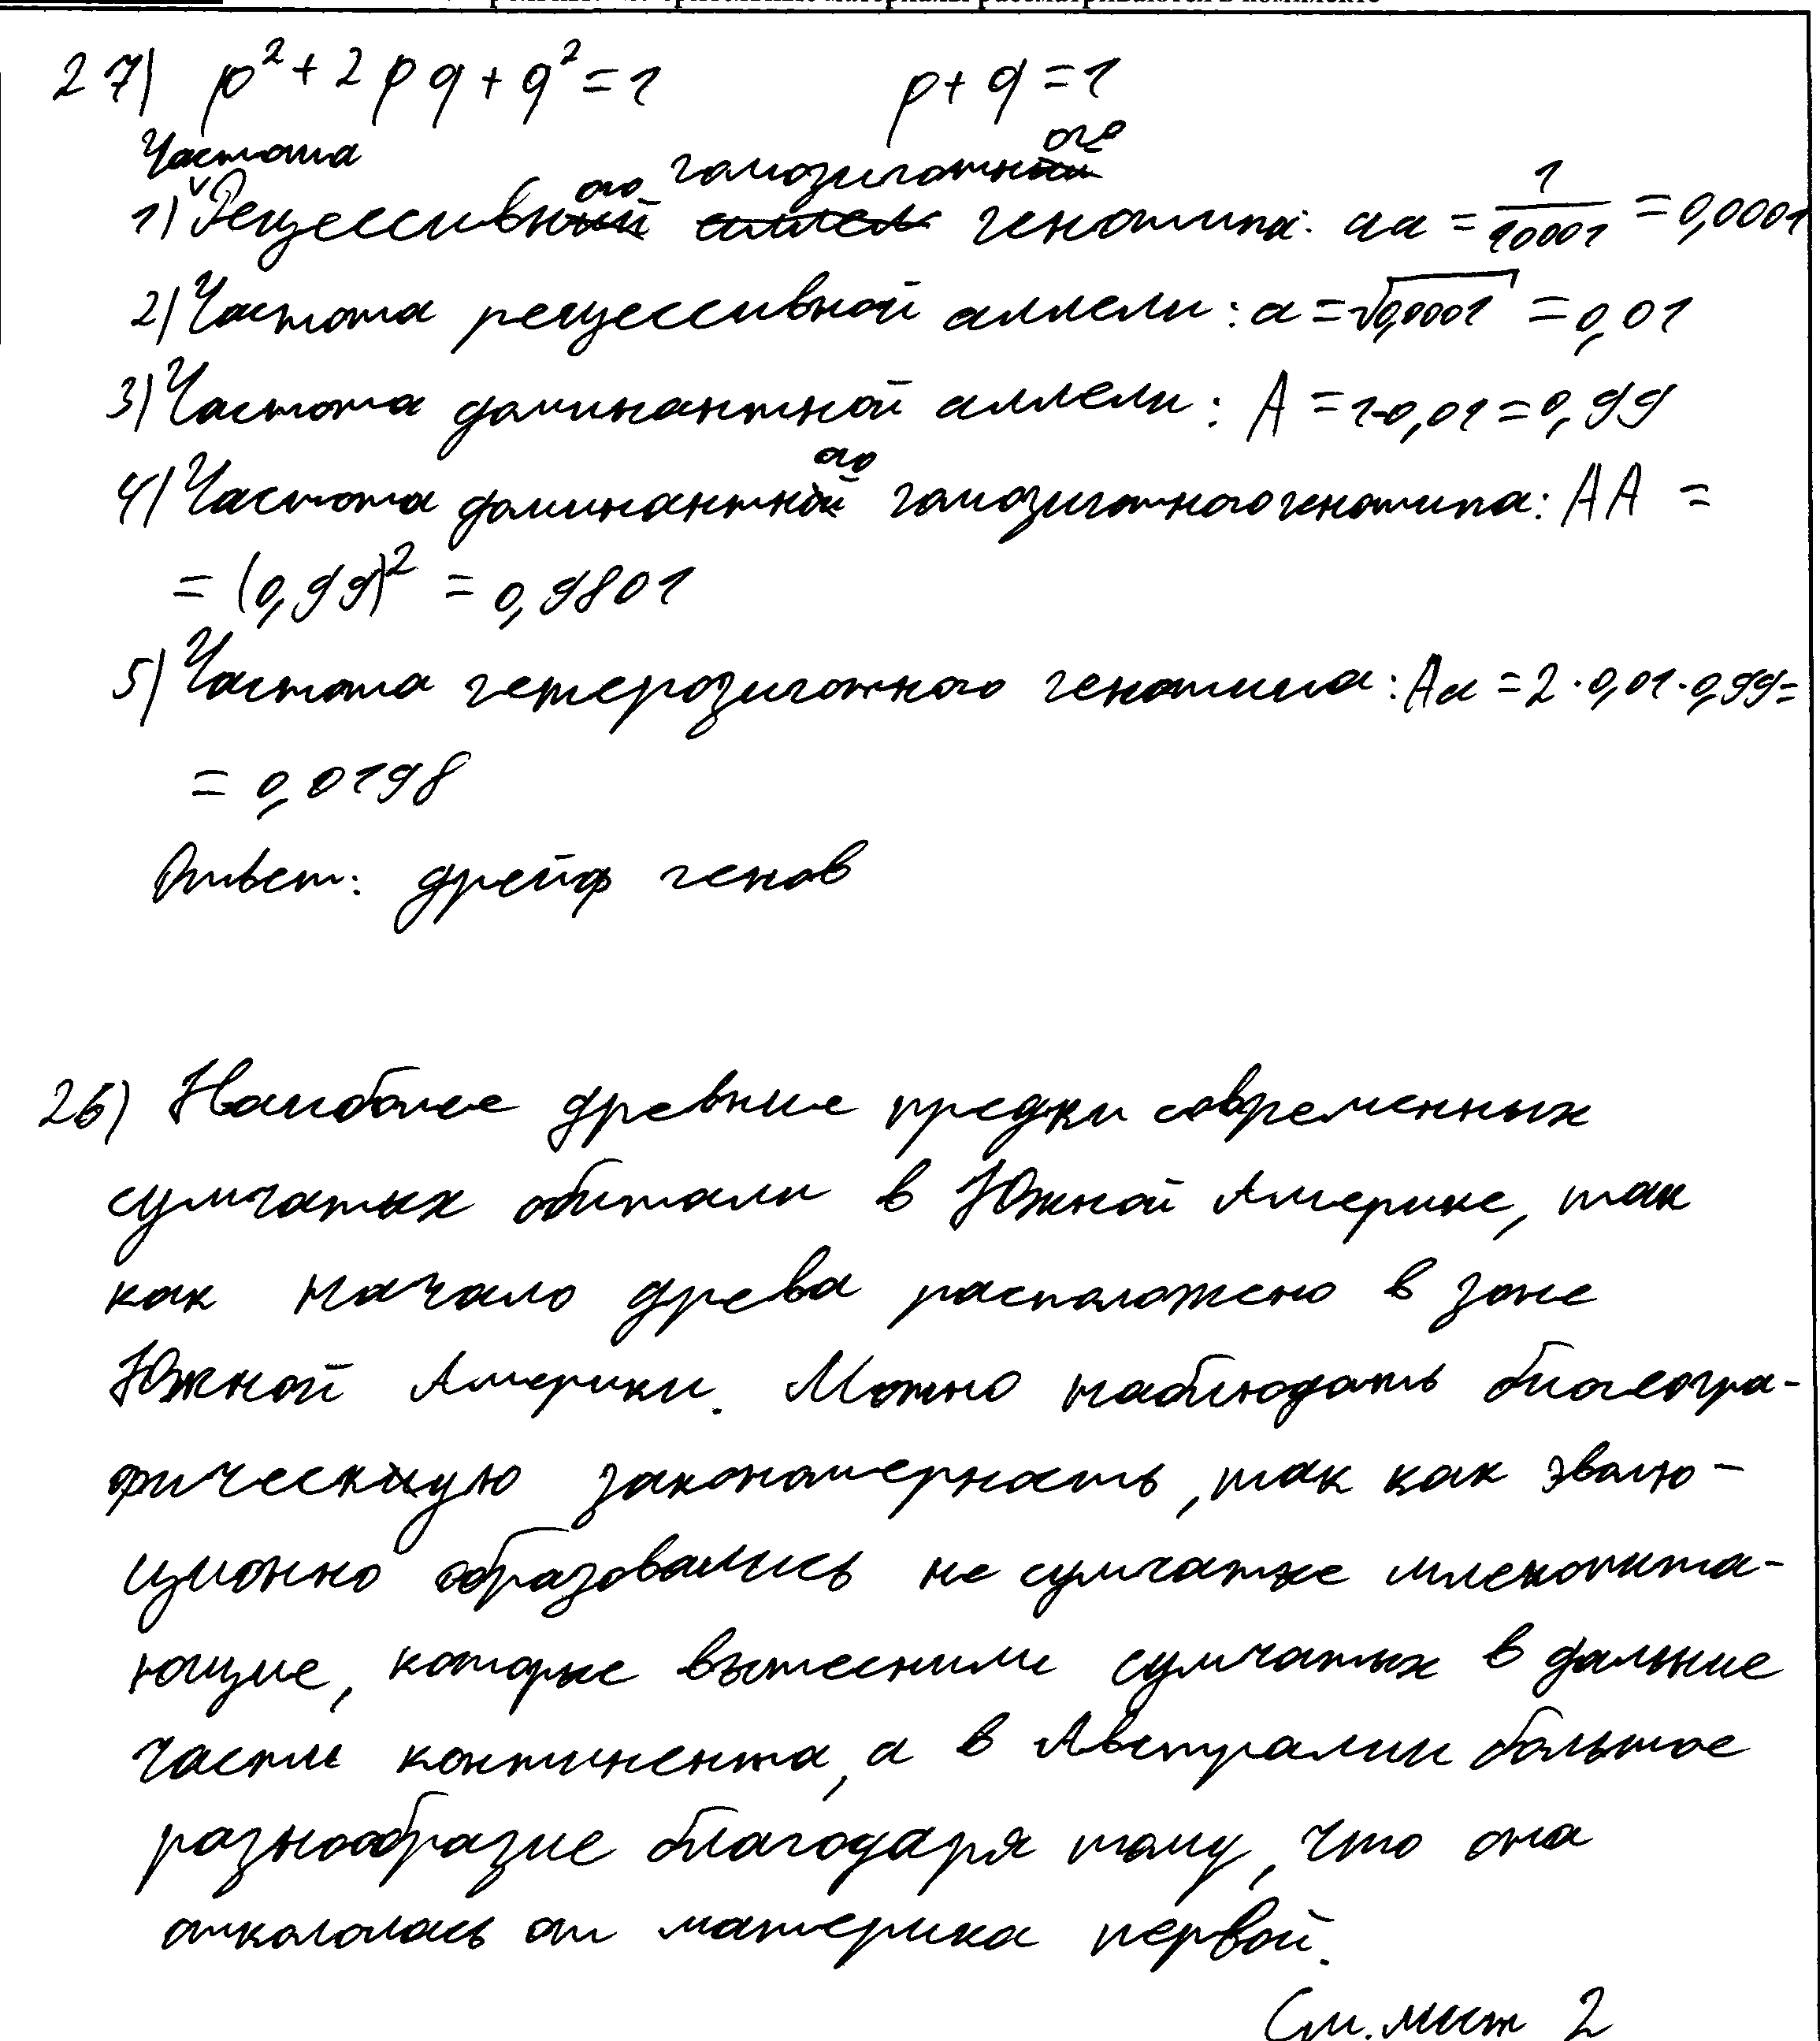 27) p² + 2pq + q² = 1 p + q = 1
Частота
1) Рецессивного гомозиготного генотипа: aa = 1/10001 = 0,0001
2) Частота рецессивной аллели: a = √0,0001 = 0,01
3) Частота доминантной аллели: A = 1-0,01 = 0,99
4) Частота доминантного гомозиготного генотипа: AA =
= (0,99)² = 0,9801
5) Частота гетерозиготного генотипа: Aa = 2 · 0,01 · 0,99 =
= 0,0198
Ответ: дрейф генов
26) Наиболее древние предки современных
сумчатых обитали в Южной Америке, так
как начало древа расположено в зоне
Южной Америки. Можно наблюдать биогеогра-
фическую закономерность, так как эволю-
ционно образовались не сумчатые млекопита-
ющие, которые вытеснили сумчатых в дальние
части континента, а в Австралии большое
разнообразие благодаря тому, что она
откололась от материка первой.
См. лист 2